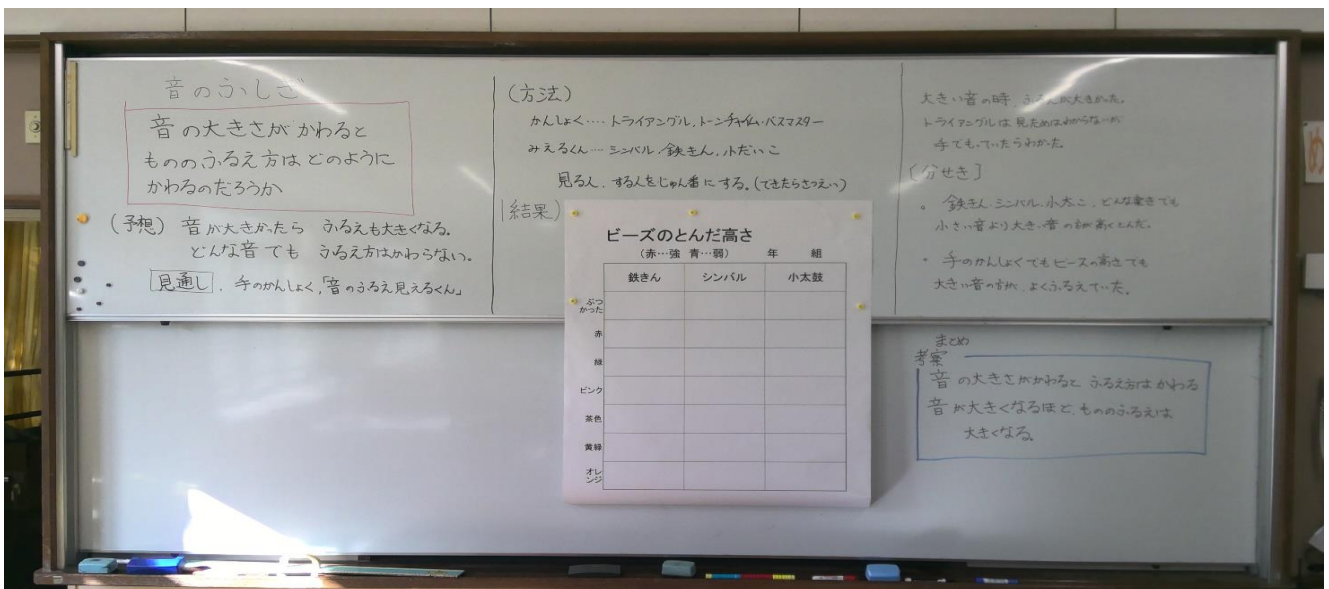 音のふしぎ
音の大きさが かわると
もののふるえ方は どのように
かわるのだろうか
(予想) 音が大きかったら ふるえも大きくなる。
どんな音でも ふるえ方はかわらない。
見通し 手のかんしょく,「音のふるえ見えるくん」
(方法)
かんしょく…・トライアングル,トーンチャイム・バスマスター
みえるくん… シンバル,鉄きん,小だいこ
見る人,する人をじゅん番にする。(できたらさつえい)
結果)
ビーズのとんだ高さ
(赤…強 青…弱) 年 組
鉄きん シンバル 小太鼓
ぶつ
かった
赤
緑
ピンク
茶色
黄緑
オレ
ンジ
大きい音の時,ふるえが大きかった。
トライアングルは 見ためはわからないが
手でもっていたらわかった。
[分せき]
。 鉄きん,シンバル,小太こ,どんな楽きでも
小さい音より大きい音の方が高くとんだ。
・ 手のかんしょくでもビーズの高さでも
大きい音の方が,よくふるえていた。
まとめ
考察
音の大きさがかわると ふるえ方は かわる
音が大きくなるほど,もののふるえは
大きくなる。